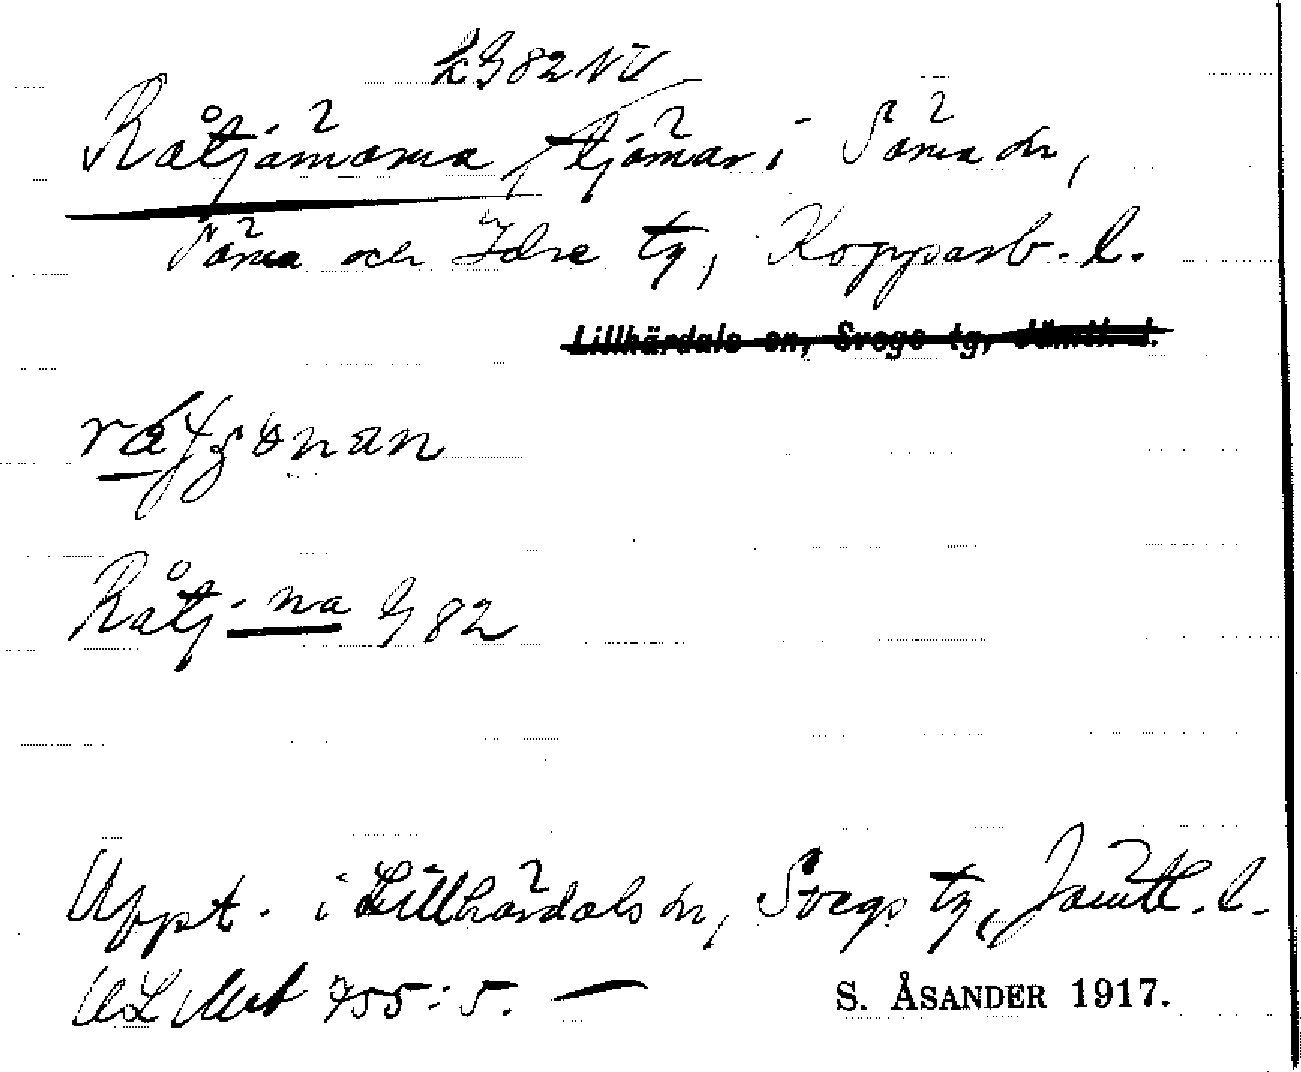 G 82 NV
Råtjärnarna, tjärnar i Särna sn,
Särna och Idre tg, Kopparb. l.
Lillhärdals sn, Svegs tg, Jämtl. l.
Råtj-na G 82
Uppt. i Lillhärdals sn, Svegs tg, Jämtl. l.
ULMA 755:5. —
S. ÅSANDER 1917.